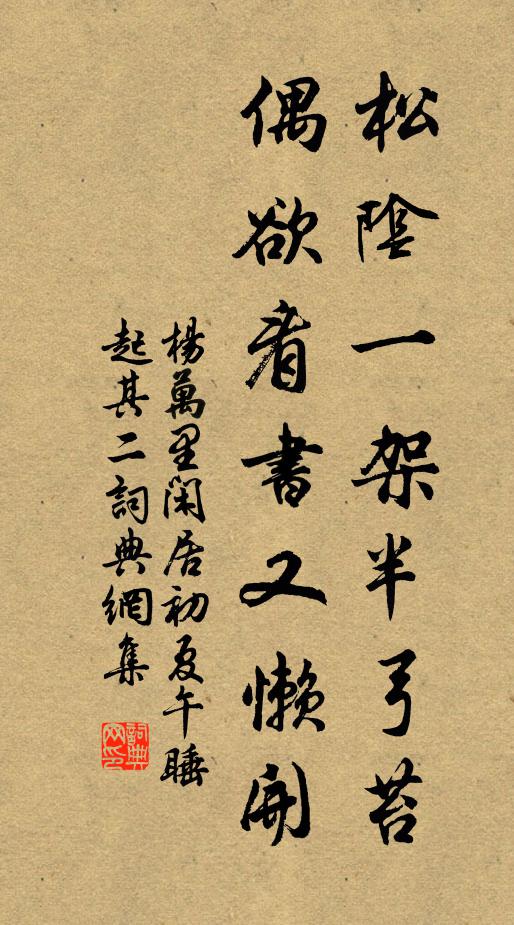 松陰一架半弓苔
偶欲看書又懶開
楊萬里閑居初夏午睡
起其二詞典網集
詞典
网印